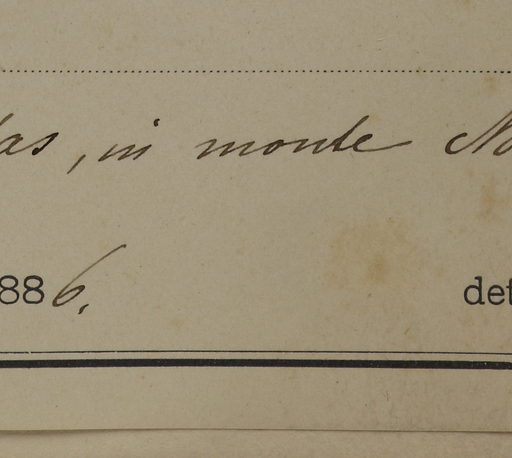 as, in monte
886. det